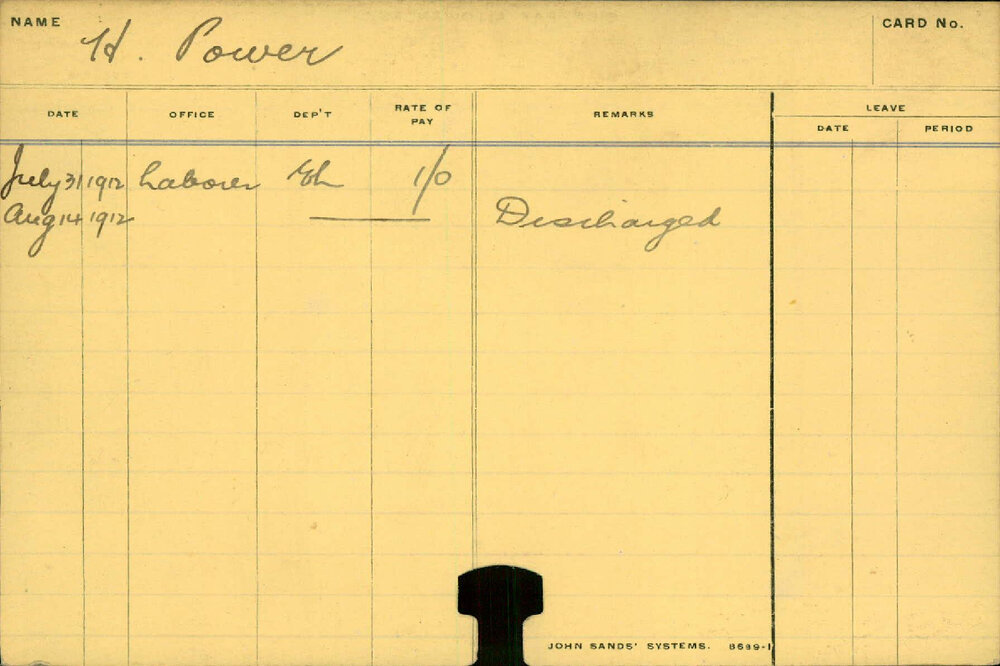 NAME H. Power CARD No.
DATE OFFICE DEP'T RATE OF PAY REMARKS LEAVE
DATE PERIOD
July 31 1912 Laborer 1/0
Aug 14 1912 Discharged
JOHN SANDS' SYSTEMS. 8689-1